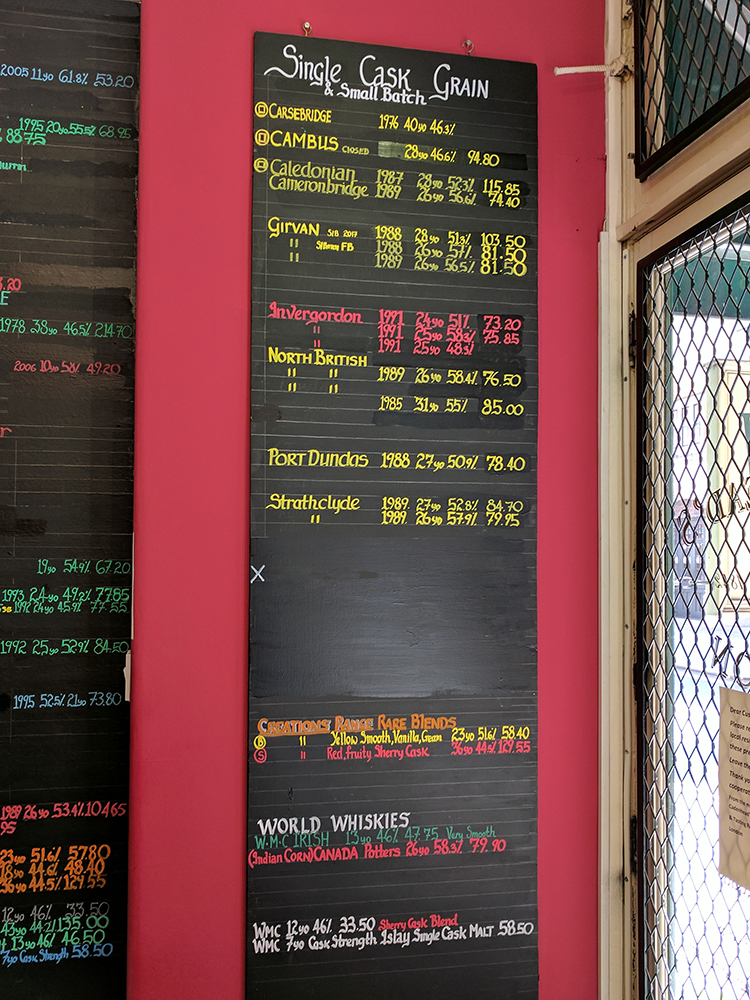 2005 11yo 61.8% 53.20
1995 20yo 55.5% 68.95
88.75
3.20
1978 38yo 46.5% 214.70
2006 10yo 58% 49.20
19yo 54.9% 67.20
1993 24yo 49.2% 77.85
1992 24yo 45.9% 77.55
1992 25yo 52.9% 84.50
1995 52.5% 21yo 73.80
1989 26yo 53.4% 104.65
95
23yo 51.6% 57.80
18yo 44.6% 48.40
36yo 44.5% 129.55
12yo 46% 33.50
43yo 44.2% 135.00
13yo 46% 46.50
7yo Cask Strength 58.50
Single Cask Grain
& Small Batch
CARSEBRIDGE 1976 40yo 46.3%
CAMBUS CLOSED 28yo 46.6% 94.80
Caledonian 1987 28yo 52.3% 115.85
Cameronbridge 1989 26yo 56.6% 74.40
GIRVAN 1988 28yo 51.3% 103.50
" FB 1988 26yo 57% 81.50
" 1989 26yo 56.5% 81.50
Invergordon 1991 24yo 51% 73.20
" 1991 25yo 58.3% 75.85
" 1991 25yo 48.3%
NORTH BRITISH
" " 1989 26yo 58.4% 76.50
" " 1985 31yo 55% 85.00
PORT DUNDAS 1988 27yo 50.9% 78.40
Strathclyde 1989 27yo 52.8% 84.70
" 1989 26yo 57.9% 79.95
X
CREATIONS RANGE RARE BLENDS
B " Yellow Smooth, Vanilla, Grain 23yo 51.6% 58.40
S " Red, Fruity Sherry Cask 36yo 44.5% 129.55
WORLD WHISKIES
W.M.C IRISH 13yo 46% 47.75 Very Smooth
(Indian Corn) CANADA Potters 26yo 58.3% 79.90
WMC 12yo 46% 33.50 Sherry Cask Blend
WMC 7yo Cask Strength Islay Single Cask MALT 58.50